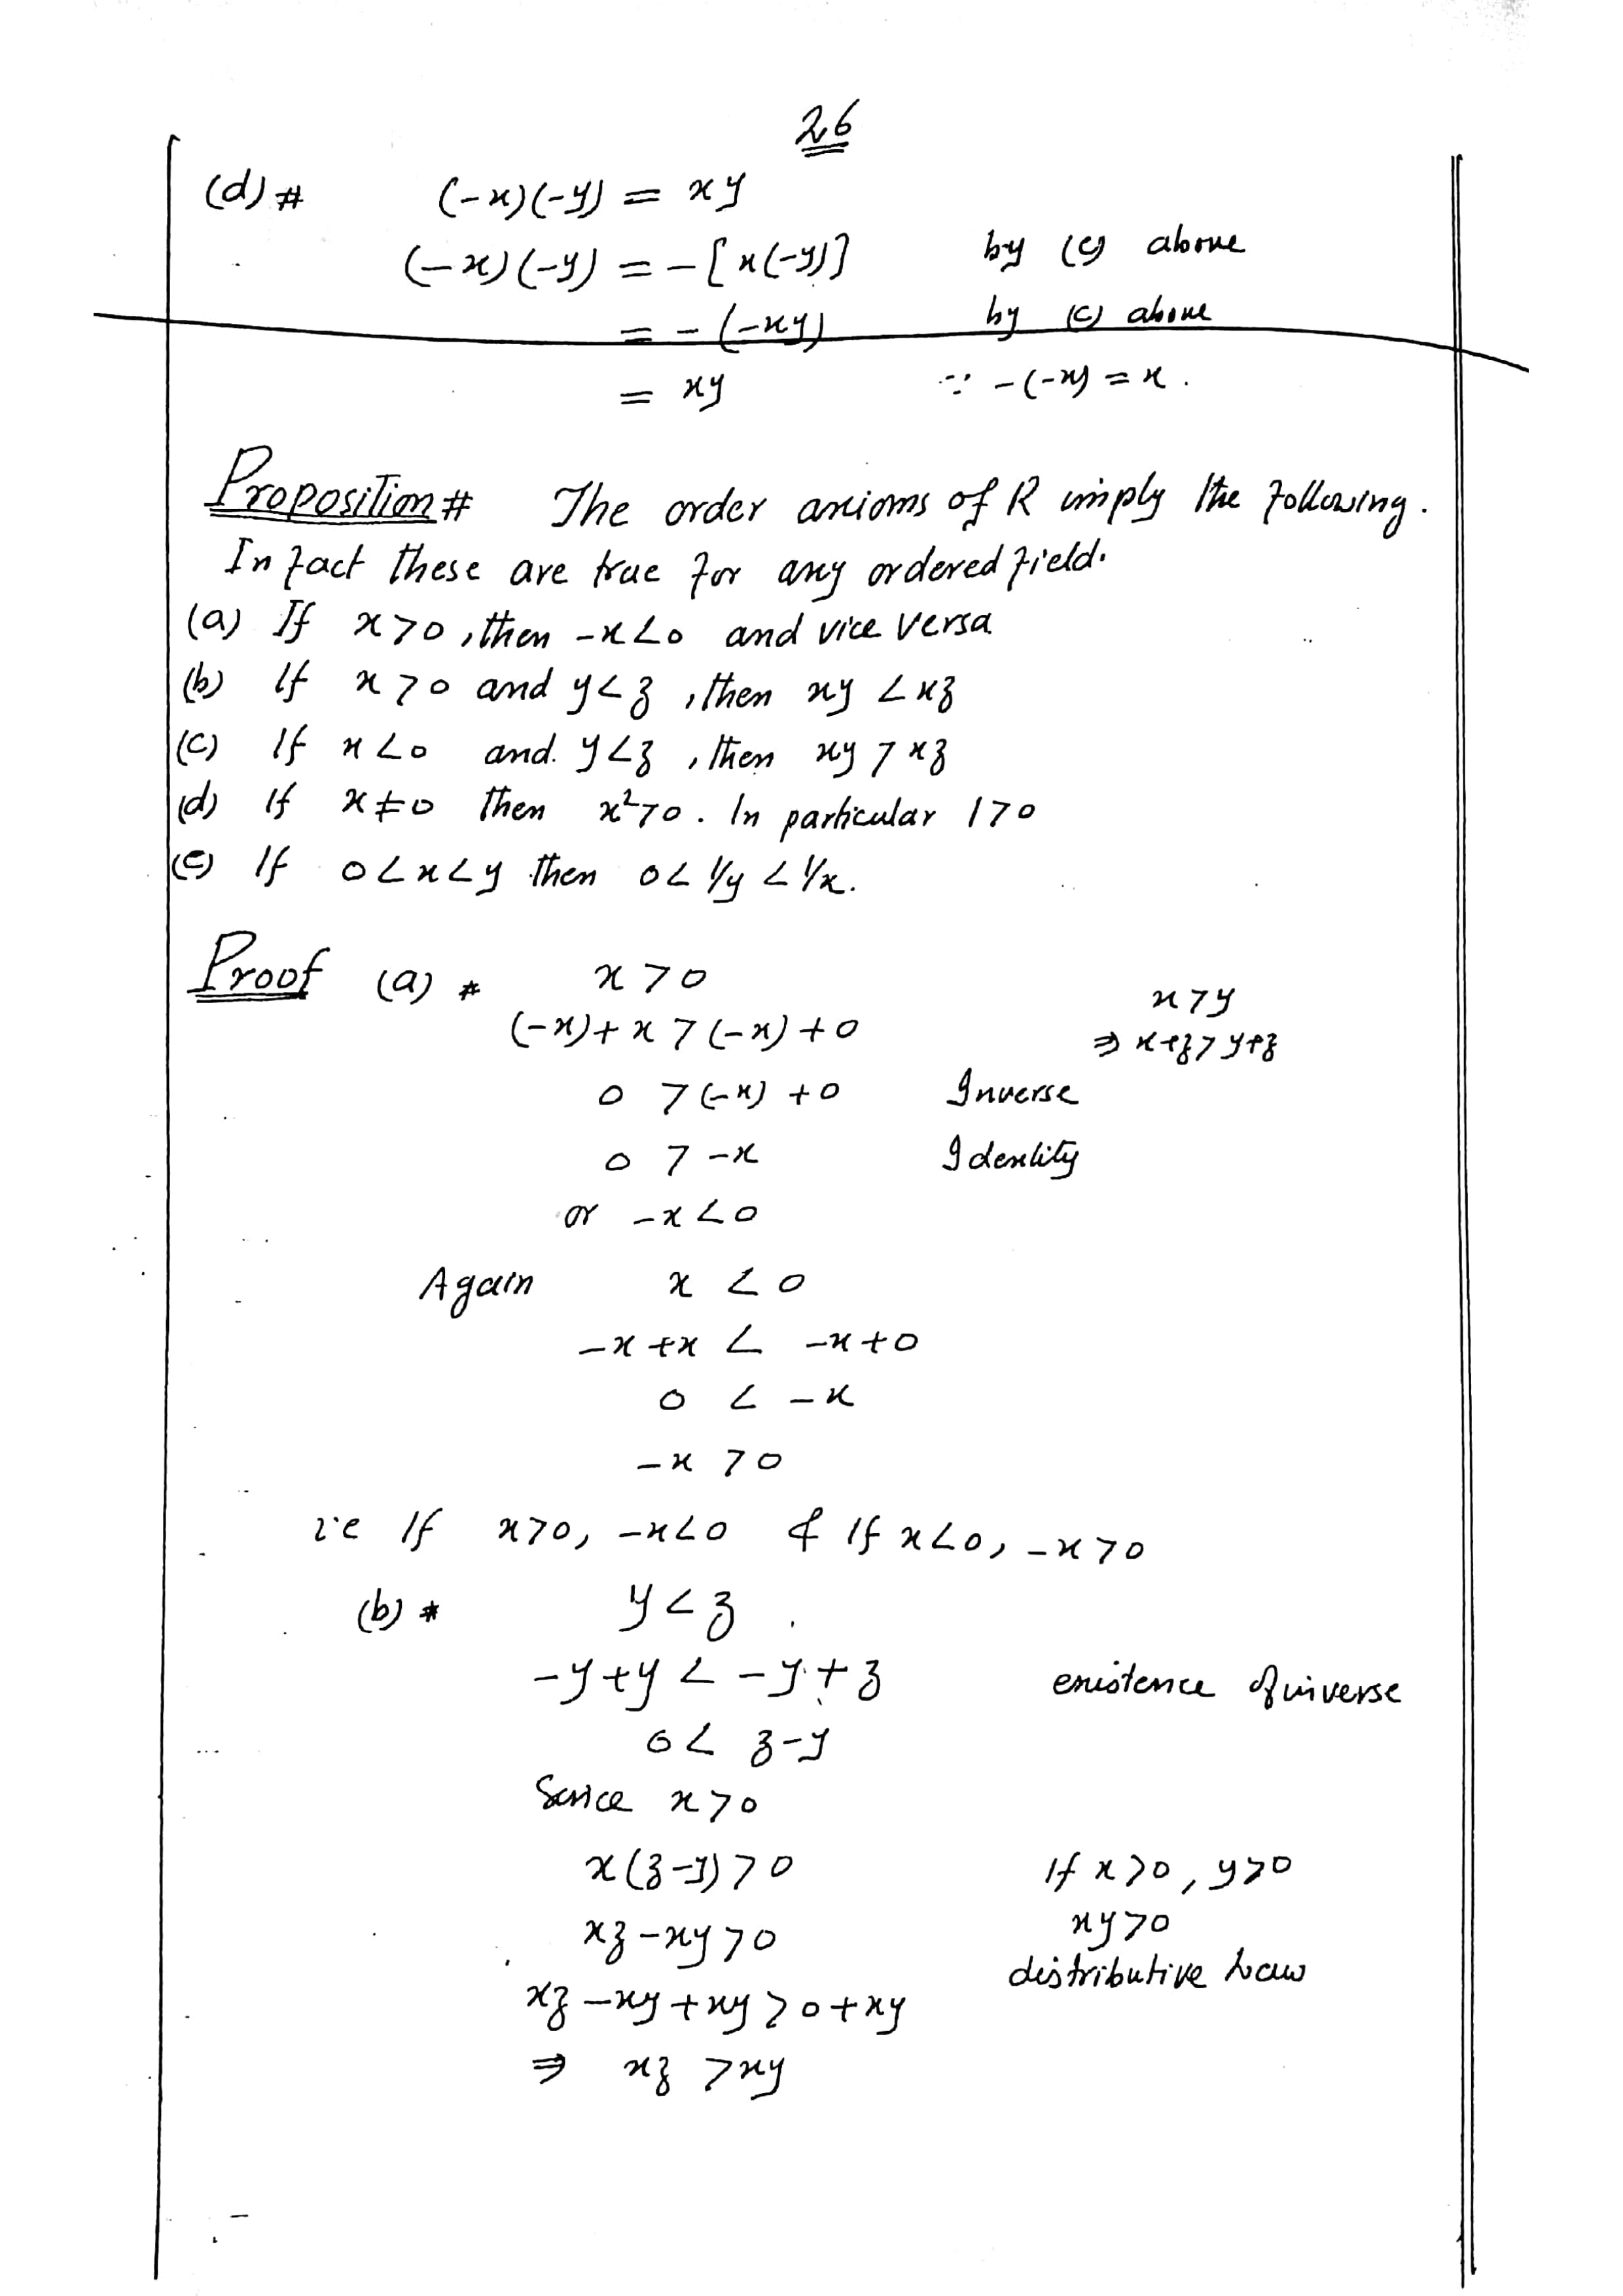 26
(d) # (-x)(-y) = xy
(-x)(-y) = -[x(-y)] by (c) above
= -(-xy) by (c) above
= xy ∵ -(-x) = x.
Proposition # The order axioms of R imply the following.
In fact these are true for any ordered field.
(a) If x > 0, then -x < 0 and vice versa
(b) If x > 0 and y < z, then xy < xz
(c) If x < 0 and. y < z, then xy > xz
(d) If x ≠ 0 then x² > 0. In particular 1 > 0
(e) If 0 < x < y then 0 < 1/y < 1/x.
Proof (a) # x > 0
x > y
(-x) + x > (-x) + 0
⇒ x+z > y+z
0 > (-x) + 0 Inverse
0 > -x Identity
or -x < 0
Again x < 0
-x + x < -x + 0
0 < -x
-x > 0
i.e If x > 0, -x < 0 & If x < 0, -x > 0
(b) # y < z
-y + y < -y + z existence of inverse
0 < z - y
Since x > 0
x(z-y) > 0 If x > 0, y > 0
xz - xy > 0 xy > 0
distributive Law
xz - xy + xy > 0 + xy
⇒ xz > xy